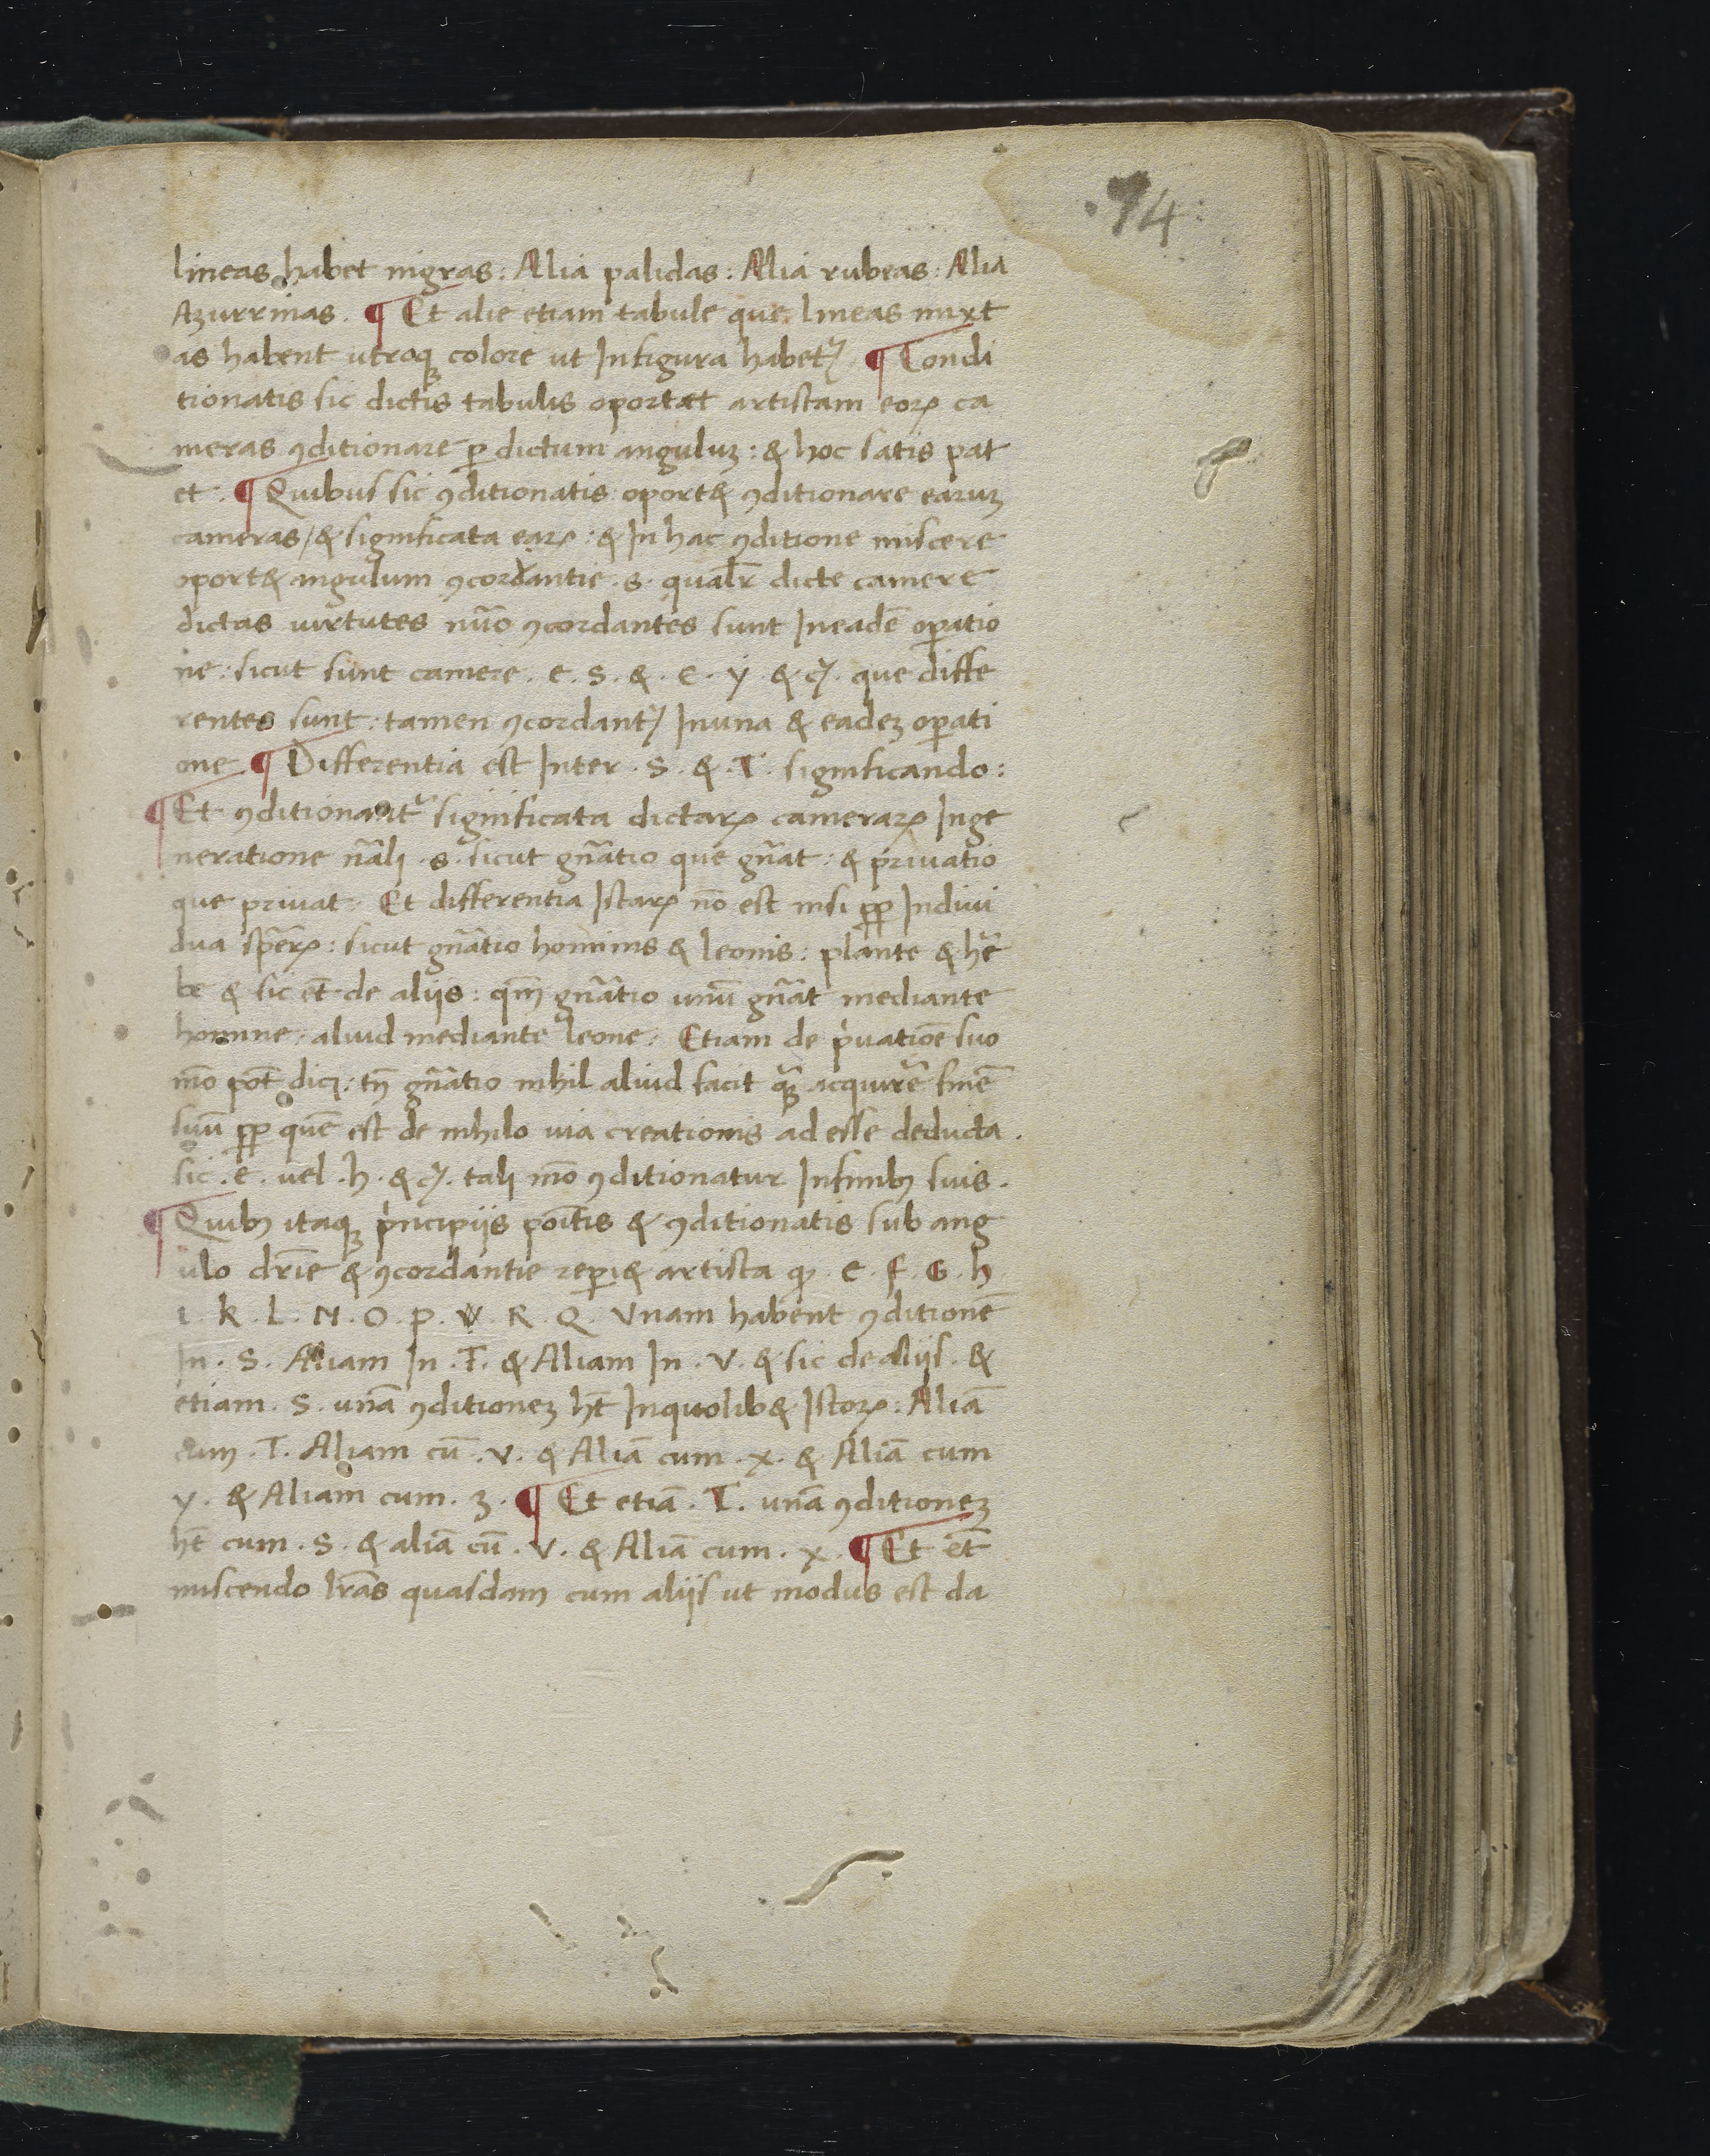 .74:
lineas habet nigras: Alia palidas: Alia rubeas: Alia
Azurrinas. ¶ Et alie etiam tabule que lineas mixt
as habent utroqꝫ colore ut Infigura habetꝫ ¶ Condi
tionatis sic dictis tabulis oportet artistam eoꝝ ca
meras ꝯditionare ꝑ dictum anguluꝫ: & hoc satis pat
et: ¶ Quibus sic ꝯditionatis oport& ꝯditionare earuꝫ
cameras/ & significata eaꝝ: & In hac ꝯditione miscere
oport& angulum ꝯcordantie .s. qualr̄ dicte camere
dictas uirtutes nūo ꝯcordantes sunt Ineadē oꝑatio
ne: sicut sunt camere. e. s. &. e. y & cꝫ. que diffe
rentes sunt: tamen ꝯcordantꝫ Inuna & eadeꝫ oꝑati
one ¶ Differentia est Inter .S. &. T. significando:
¶ Et ꝯditionantr̄ significata dictaꝝ cameraꝝ Inge
neratione nāli .s. sicut gn̄atio que gn̄at: & priuatio
que priuat: Et differentia Istaꝝ nō est nisi ꝓꝑ Indiui
dua sp̄eꝝ: sicut gn̄atio hominis & leonis: plante & hē
be & sic et̄ de aliis: qm̄ gn̄atio unū gn̄at mediante
homine: aliud mediante leone: Etiam de p̍uatiōe suo
mō pōt dici: tn̄ gn̄atio nihil aliud facit qꝫ̄ acquirē finē
suū ꝓꝑ quē est de nihilo uia creationis ad esse deducta.
sic .e. uel .h. & cꝫ. tali mō ꝯditionatur Infinibꝫ suis.
¶ Quibꝫ itaqꝫ p̍ncipiis poītis & ꝯditionatis sub ang
ulo dr̄ie & ꝯcordantie reꝑi& artista ꝙ. e. f. G. h
i. k. l. N. O. p. V. R. Q. Vnam habent ꝯditionē
In. S. Aliam In. T. & Aliam In. V. & sic de aliis. &
etiam. S. unā ꝯditioneꝫ hēt Inquolib& Istoꝝ: Aliā
cum .T. Aliam cū .v. & Aliā cum .x. & Aliā cum
y. & Aliam cum. ꝫ. ¶ Et etiā. T. unā ꝯditioneꝫ
hēt cum. S. & aliā cū. v. & Aliā cum. x. ¶ Et et̄
miscendo lr̄as quasdam cum aliis ut modus est da